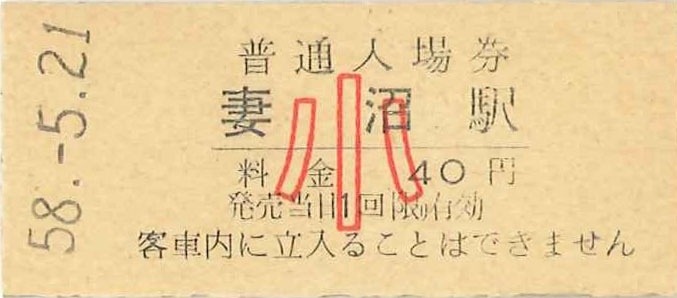 58.-5.21
普通入場券
妻沼駅
小
料金 40円
発売当日1回限り有効
客車内に立入ることはできません